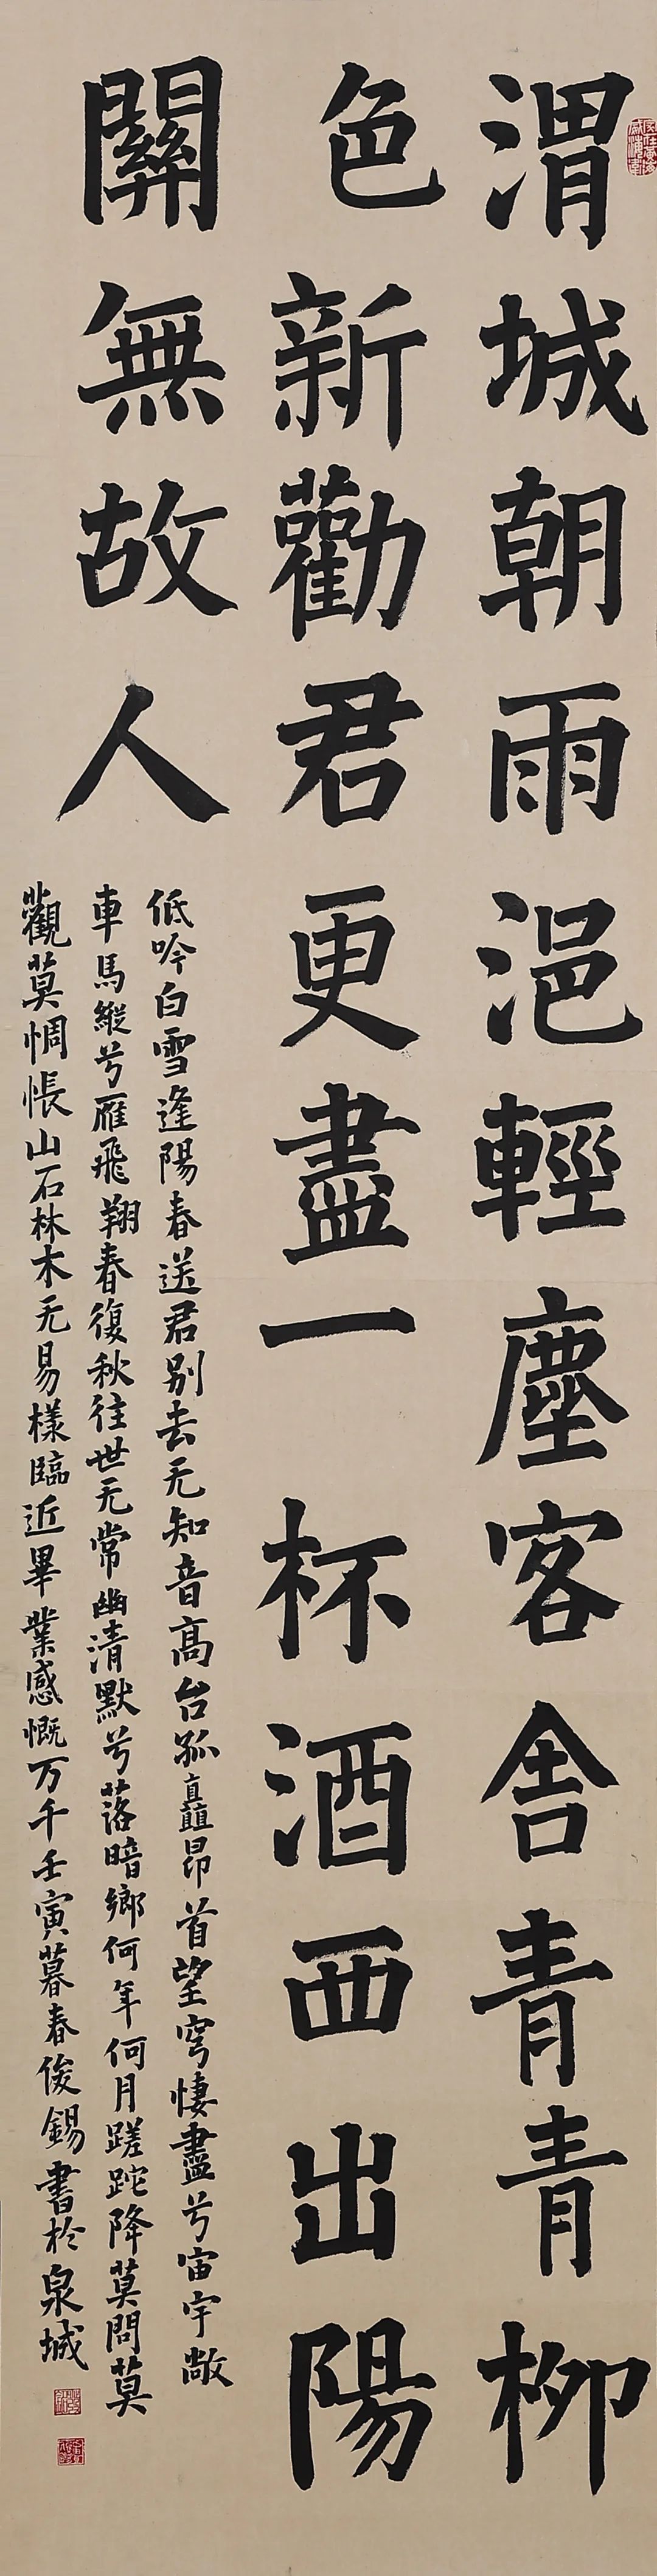 渭城朝雨浥輕塵客舍青青柳
色新勸君更盡一杯酒西出陽
關無故人
低吟白雪逢陽春送君别去无知音高台孤矗昂首望穹悽盡兮宙宇敞
車馬縱兮雁飛翔春復秋往世无常幽清默兮落暗鄉何年何月蹉跎降莫問莫
觀莫惆悵山石林木无易樣臨近畢業感慨万千壬寅暮春俊錫書於泉城